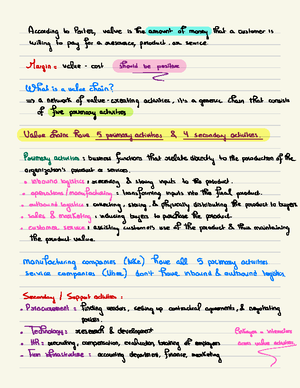 According to Porter, value is the amount of money that a customer is
willing to pay for a resource, product, or service.
Margin = value - cost should be positive
What is a value chain?
is a network of value-creating activities, it's a generic chain that consists
of five primary activities
Value chains have 5 primary activities & 4 secondary activities.
Primary activities : business functions that relate directly to the production of the
organization's product or services.
• inbound logistics : receiving & storing inputs to the product.
• operations / manufacturing : transforming inputs into the final product.
• outbound logistics : collecting, storing, & physically distributing the product to buyers
• sales & marketing : inducing buyers to purchase the product.
• customer service : assisting customers use of the product & thus maintaining
the product value.
manufacturing companies (Nike) have all 5 primary activities
service companies (Uber) don't have inbound & outbound logistics
Secondary / Support activities :
• Procurement : finding vendors, setting up contractual agreements, & negotiating
prices.
• Technology : research & development
• HR : recruiting, compensation, evaluation, training of employees
• Firm infrastructure : accounting department, finance, marketing
Linkages = interactions
across value activities